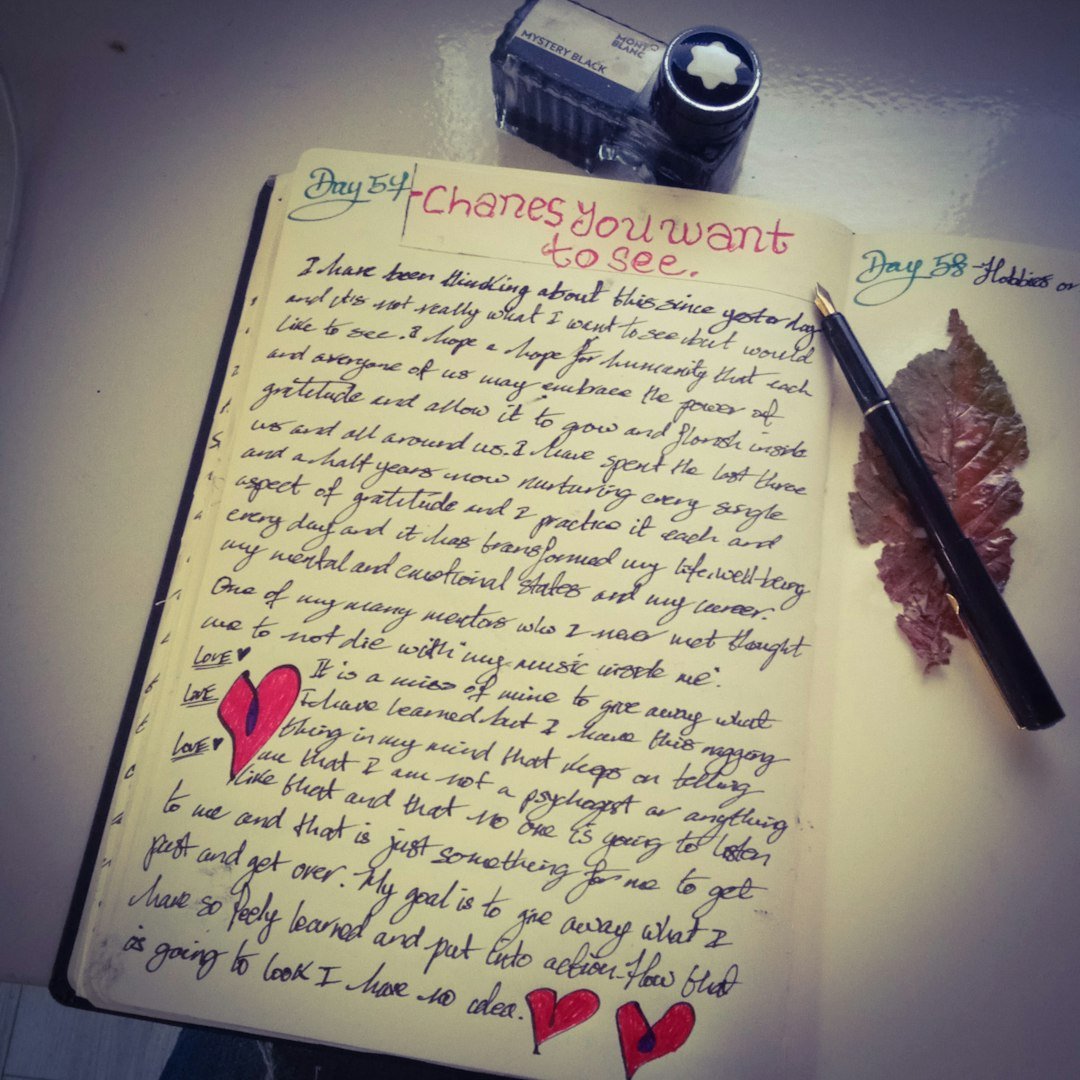 MONT
BLANC
MYSTERY BLACK
Day 57
-Chanes You want
to see.
I have been thinking about this since yesterday
and it's not really what I want to see but would
like to see. I hope a hope for humanity that each
and everyone of us may embrace the power of
gratitude and allow it to grow and florish inside
us and all around us. I have spent the last three
and a half years now nurturing every single
aspect of gratitude and I practice it each and
every day and it has transformed my life, well-being
my mental and emotional states and my career.
One of my many mentors who I never met thought
me to not die with my music inside me.
LOVE ♥
LOVE
LOVE ♥
It is a miss of mine to give away what
I have learned but I have this nagging
thing in my mind that keeps on telling
me that I am not a psychogist or anything
like that and that no one is going to listen
to me and that is just something for me to get
past and get over. My goal is to give away what I
have so feely learned and put into action. How that
is going to look I have no idea.
Day 58 -Hobbies or